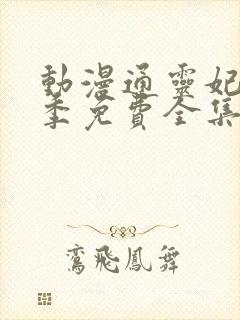 動漫通靈妃
季免費全集
鸞飛鳳舞